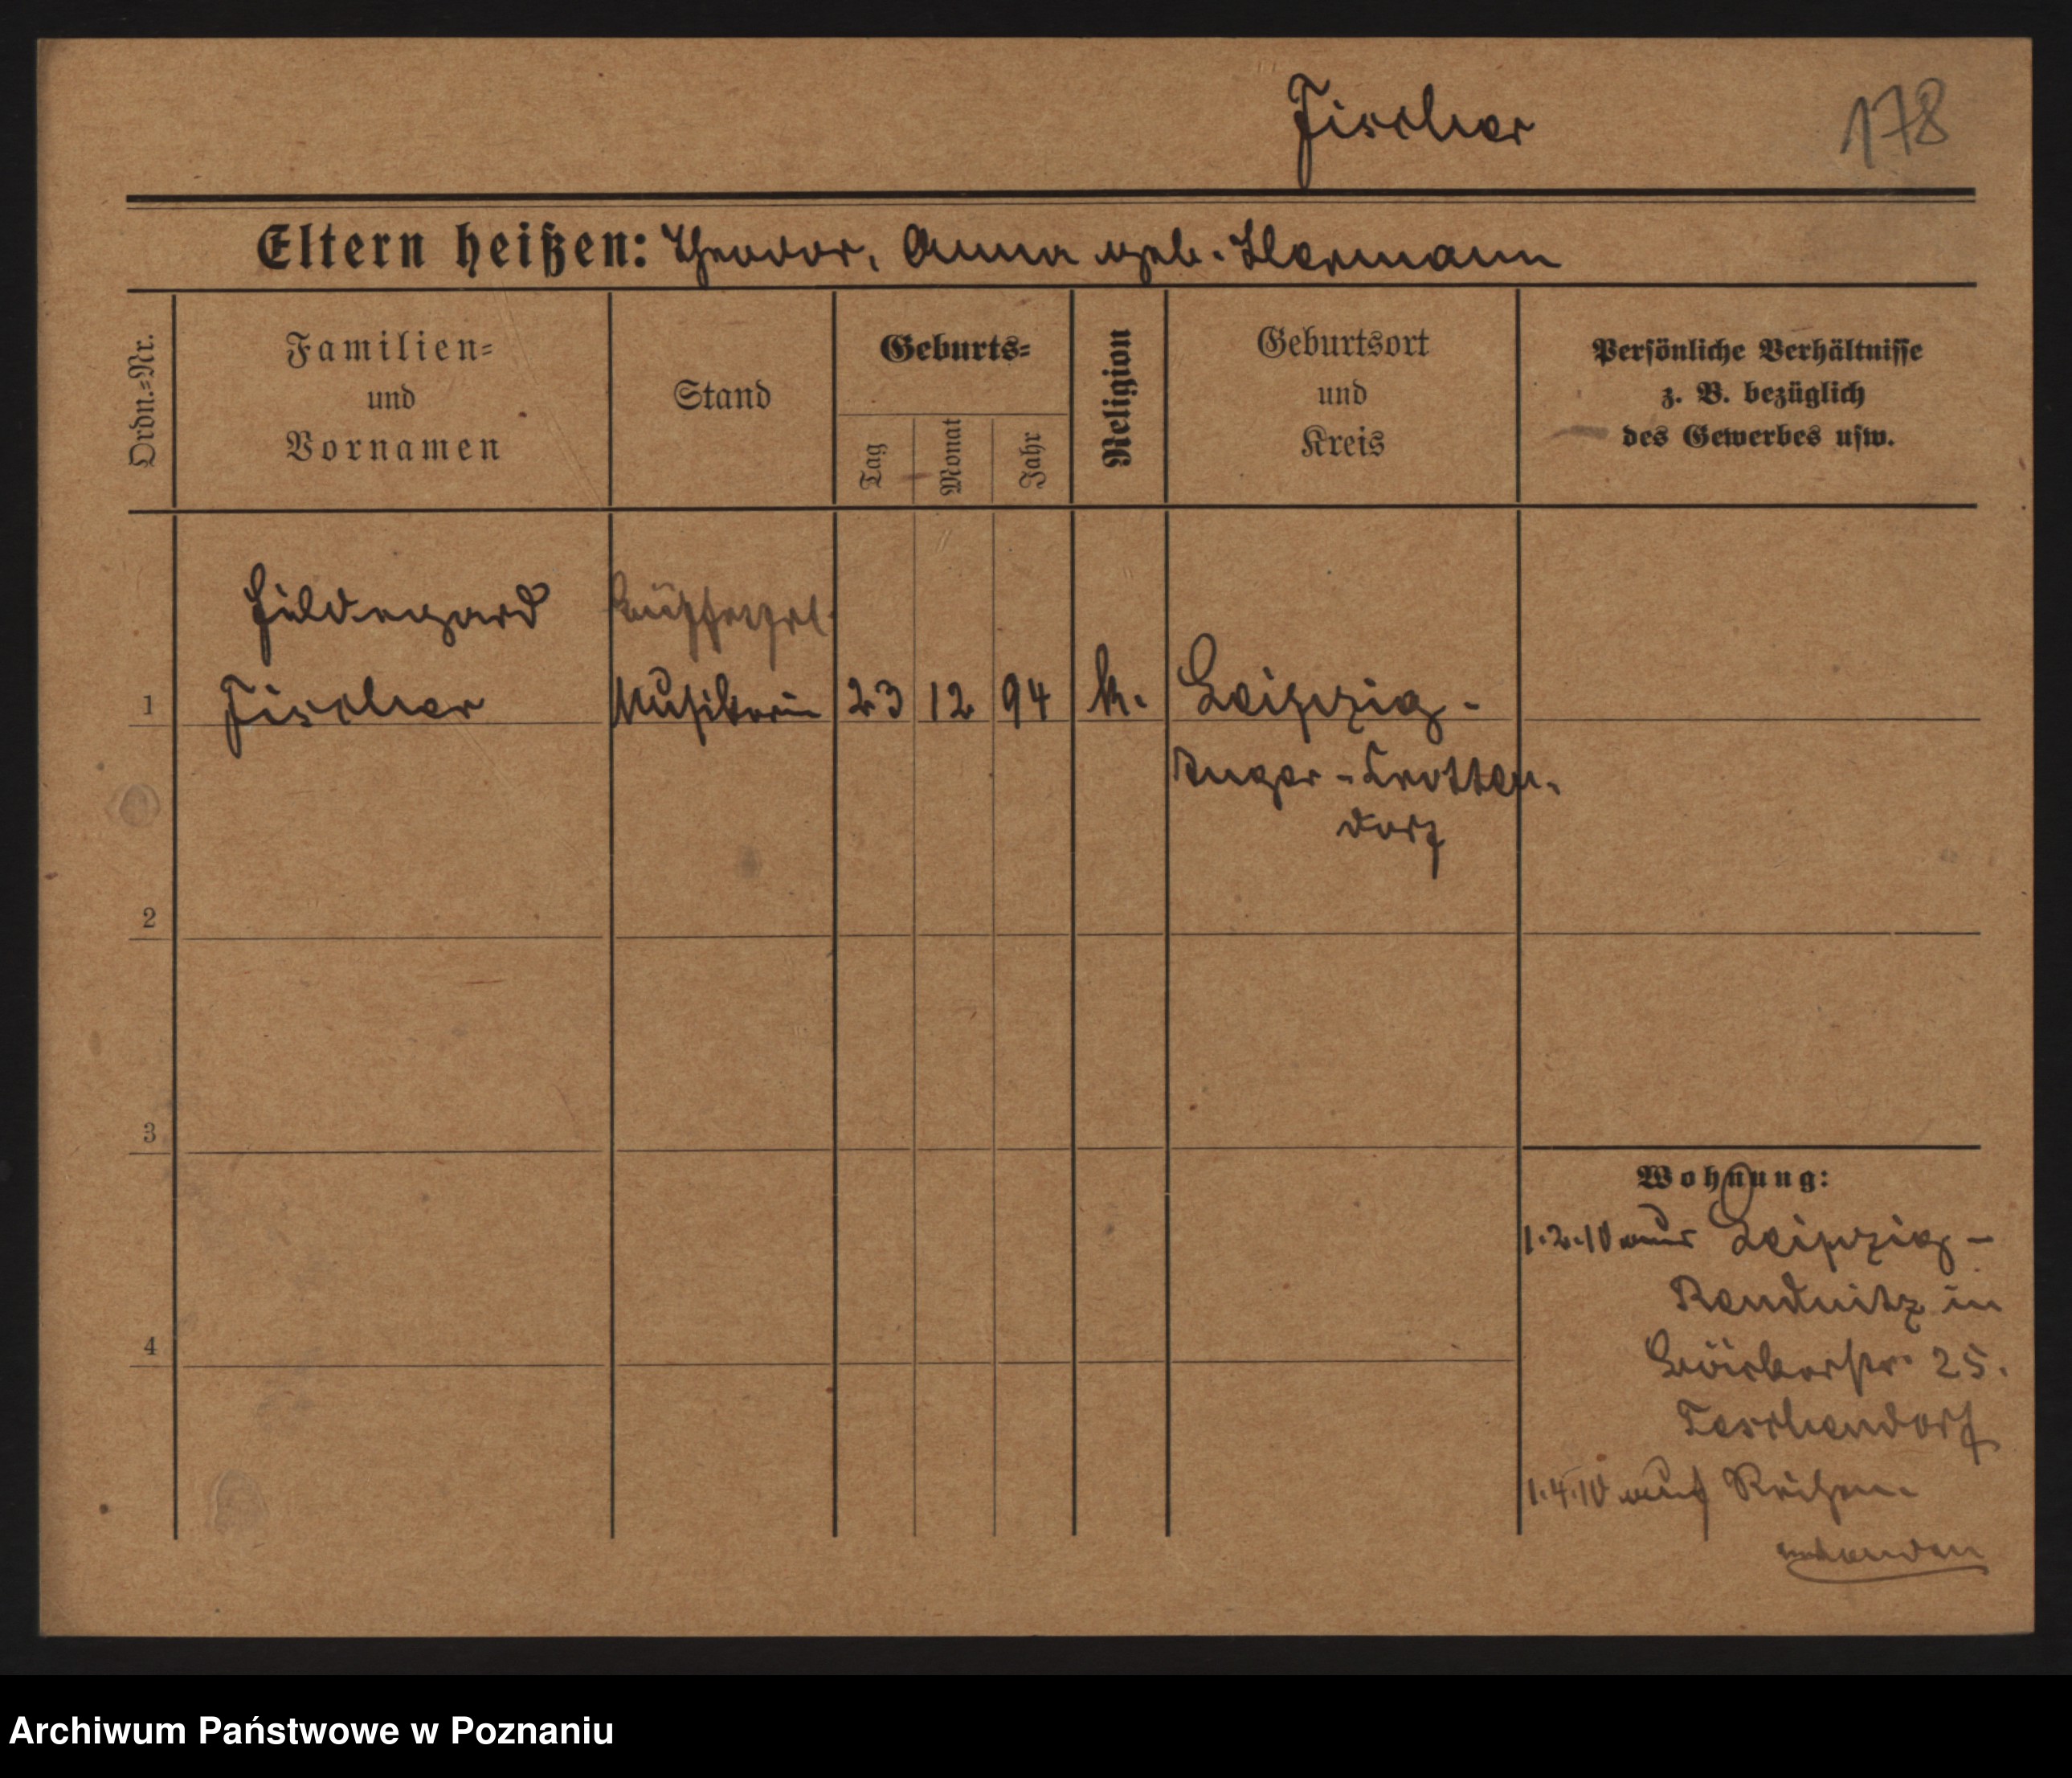 Fischer 178
Eltern heißen: Theodor, Anna geb. Hermann
Ordn.=Nr.
Familien=
und
Vornamen
Stand
Geburts=
Tag
Monat
Jahr
Religion
Geburtsort
und
Kreis
Persönliche Verhältnisse
z. B. bezüglich
des Gewerbes usw.
Hildegard
1 Fischer Musikerin 23 12 94 k. Leipzig-
Anger-Crotten-
dorf
2
3
4
Wohnung:
1.2.10 aus Leipzig-
Reudnitz in
25.
Teschendorf
1.4.10 auf Reisen.
Archiwum Państwowe w Poznaniu